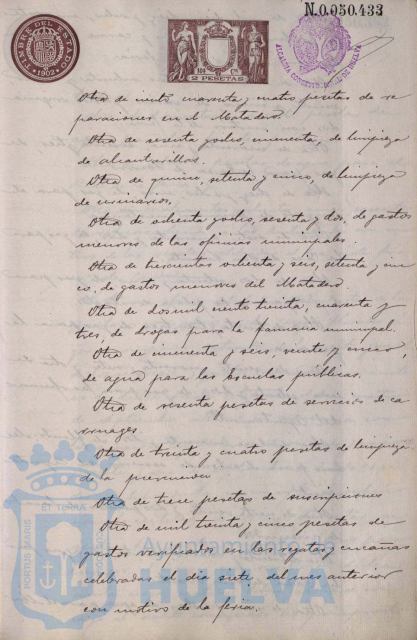 N.0.050.433
TIMBRE DEL ESTADO
1902
2 PESETAS
ALCALDIA CONSTITUCIONAL DE HUELVA
Otra de ciento cuarenta y cuatro pesetas de re
paraciones en el Matadero.
Otra de sesenta y ocho, cincuenta, de limpieza
de alcantarillas.
Otra de quince, setenta y cinco, de limpieza
de urinarios.
Otra de ochenta y ocho, sesenta y dos, de gastos
menores de las oficinas municipales.
Otra de trescientas ochenta y seis, setenta y cin
co, de gastos menores del Matadero.
Otra de dos mil ciento treinta, cuarenta y
tres, de drogas para la farmacia municipal.
Otra de cincuenta y seis, veinte y cinco,
de agua para las Escuelas públicas.
Otra de sesenta pesetas de servicios de ca
rruages.
Otra de treinta y cuatro pesetas de limpieza
de la prevencion
Otra de trece pesetas de suscripciones
Otra de mil treinta y cinco pesetas de
gastos verificados en las regatas y cucañas
celebradas el dia siete del mes anterior
con motivo de la feria.
PORTUS MARIS ET TERRA
Ayuntamiento de
HUELVA